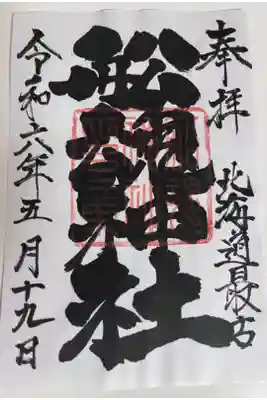 奉拝
北海道最古
舩魂神社
令和六年五月十九日